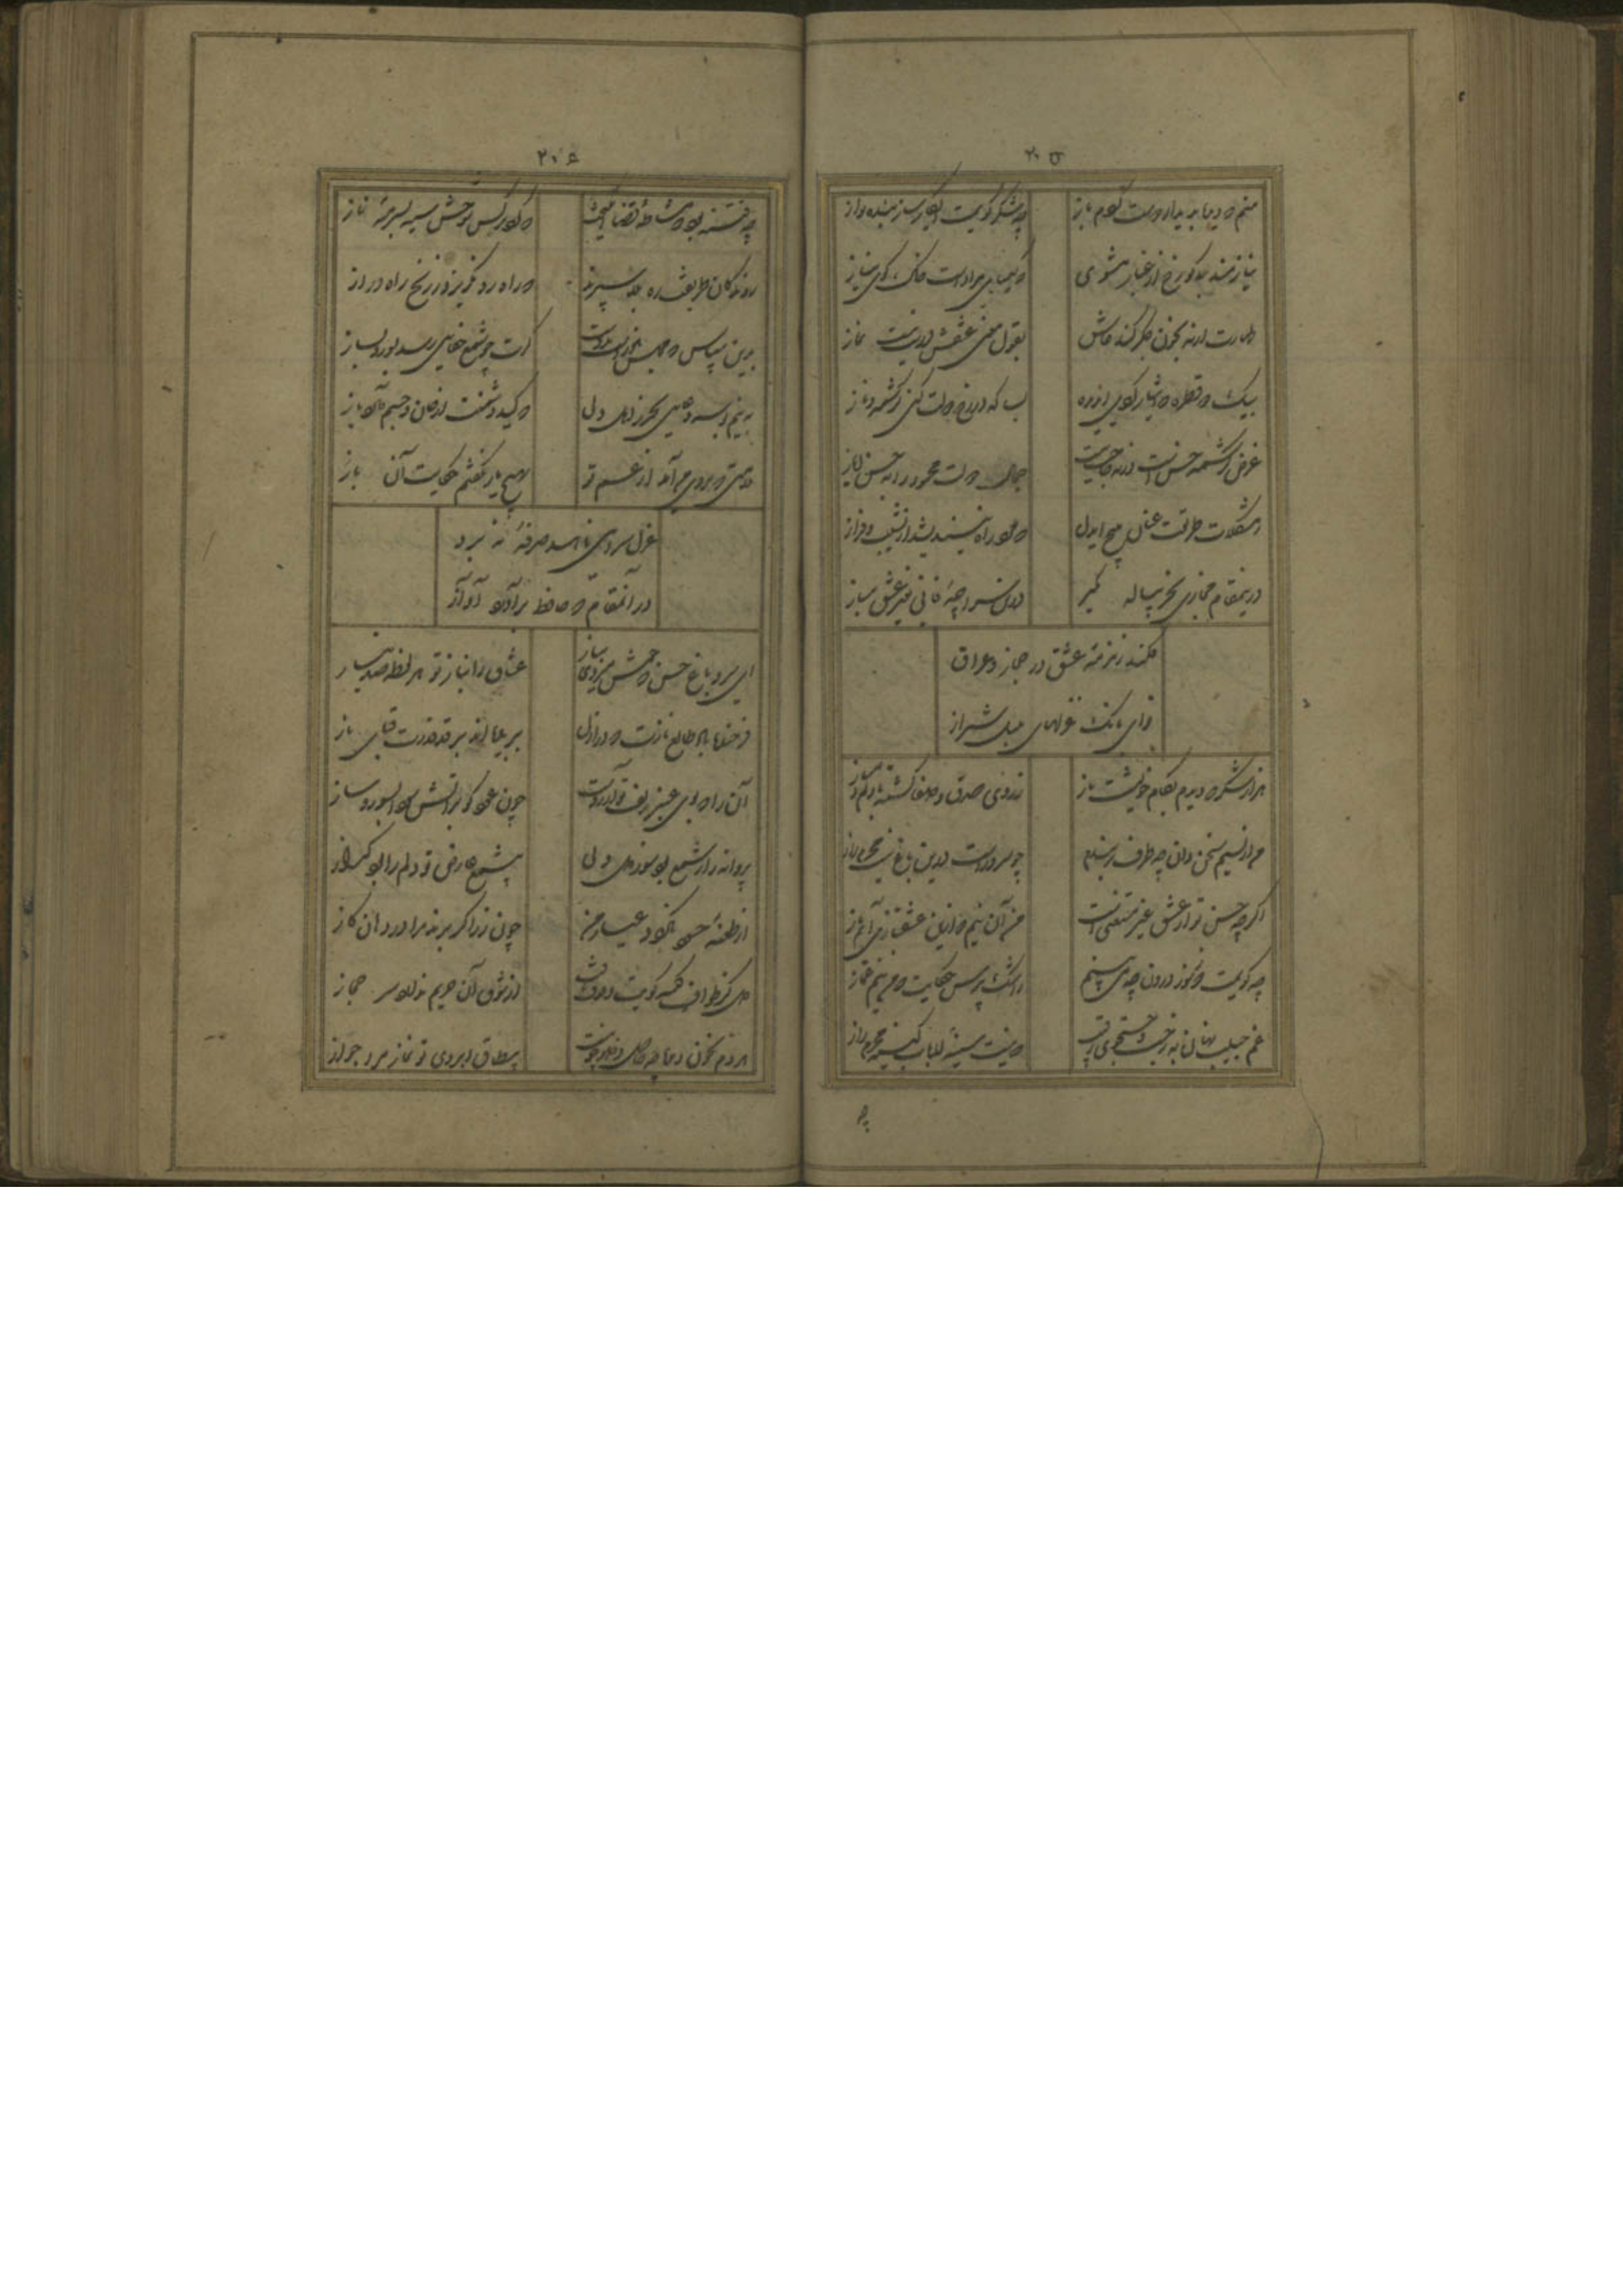 ۲۰۵
منم که دیده بدیدار دوست کردم باز چه شکر گویمت ای کارساز بنده نواز
نیازمند بلا گو رخ از غبار مشوی که کیمیای مرادست خاک کوی نیاز
طهارت ار نه بخون جگر کند عاشق بقول مفتی عشقش درست نیست نماز
بیک دو قطره که ایثار کردی ای دیده بسا که در رخ دولت کنی کرشمه و ناز
غرض کرشمه حسن است ورنه حاجت نیست جمال دولت محمود را به حسن ایاز
ز مشکلات طریقت عنان مپیچ ای دل که مرد راه نیندیشد از نشیب و فراز
درین مقام مجازی بجز پیاله مگیر درین سراچه بازیچه غیر عشق مباز
فکند زمزمه عشق در حجاز و عراق
نوای بانک غزلهای شیراز
هزار شکر که دیدم بکام خویشت باز ز روی صدق و صفا گشته با دلم دمساز
من از نسیم سخن چین چه طرف بربندم چو سرو راست درین باغ نیست محرم راز
اگرچه حسن تو از عشق غیر مستغنی است من آن نیم که ازین عشقبازی آیم باز
چه گویمت که ز سوز درون چه می بینم ز اشک پرس حکایت که من نیم غماز
غم حبیب نهان به ز جست و جوی رقیب که نیست سینه ارباب کینه محرم راز
چه
۲۰۶
چه فتنه بود که مشاطه قضا انگیخت که کرد نرگس شوخش سیه بسرمه ناز
روندگان طریقت ره بلا سپرند که راه رو نگریزد ز رنج راه دراز
بدین سپاس که مجلس منورست بدوست گرت چو شمع جفایی رسد بسوز و بساز
به نیم بوسه دعایی بخر ز اهل دلی که کید دشمنت از جان و جسم دارد باز
ملامتی که بروی من آمد از غم تو ز صبح باز نگفتم حکایت آن باز
غزل سرایی ناهید صرفه نبرد
در آن مقام که حافظ برآورد آواز
ای سرو باغ حسن که خوش میروی بناز عشاق را بناز تو هر لحظه صد نیاز
فرخنده باد طالع نازت که در ازل ببریده اند بر قد قدرت قبای ناز
آن را که بوی عنبر زلف تو آرزوست چون عود گو بر آتش سودا بسوز و ساز
پروانه را ز شمع بود سوز دل ولی بی شمع عارض تو دلم را بود گداز
از طعنه حسود نگردد عیار من چون زر اگر برند مرا در دهان گاز
دل کز طواف کعبه کویت وقوف یافت از شوق آن حریم ندارد سر حجاز
هر دم بخون دیده چه حاصل وضو چو نیست بیطاق ابروی تو نماز مرا جواز